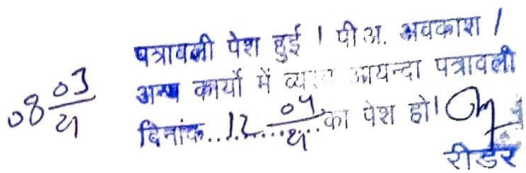 08 03/21
पत्रावली पेश हुई । पी.अ. अवकाश /
अन्य कार्यो में व्यस्त आयन्दा पत्रावली
दिनांक..12..04/21..का पेश हो।
रीडर